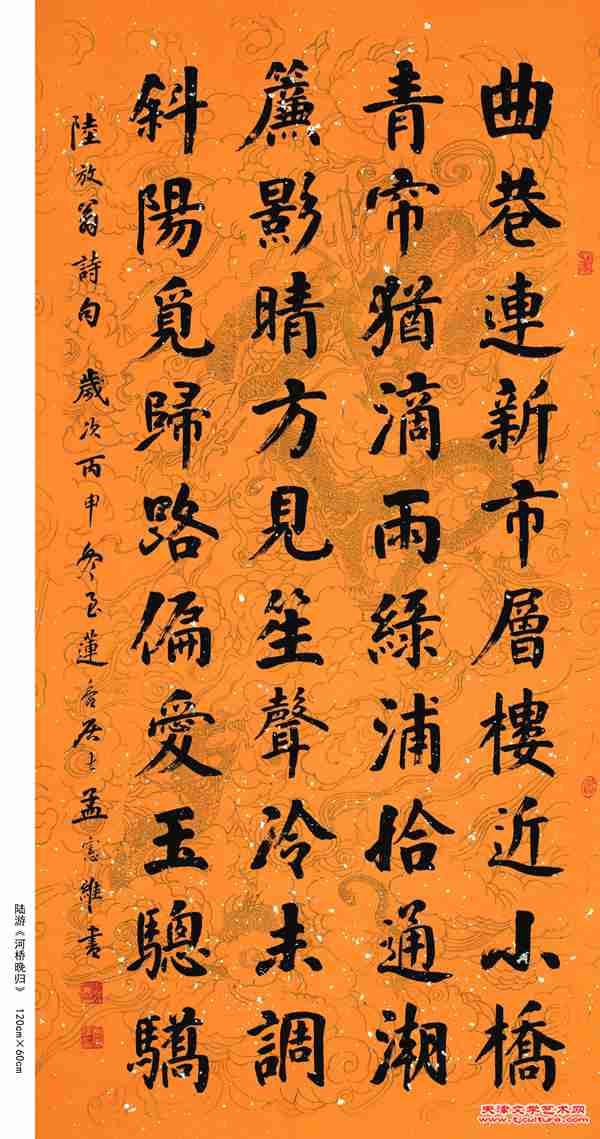 曲巷連新市層樓近小橋
青帘猶滴雨綠浦拾通潮
簾影晴方見笙聲冷未調
斜陽覓歸路偏愛玉驄驕
陸放翁詩句 歲次丙申 蓮香居士孟憲維書
陆游《河桥晚归》 120cm×60cm
天津文学艺术网
www.tjcultura.com